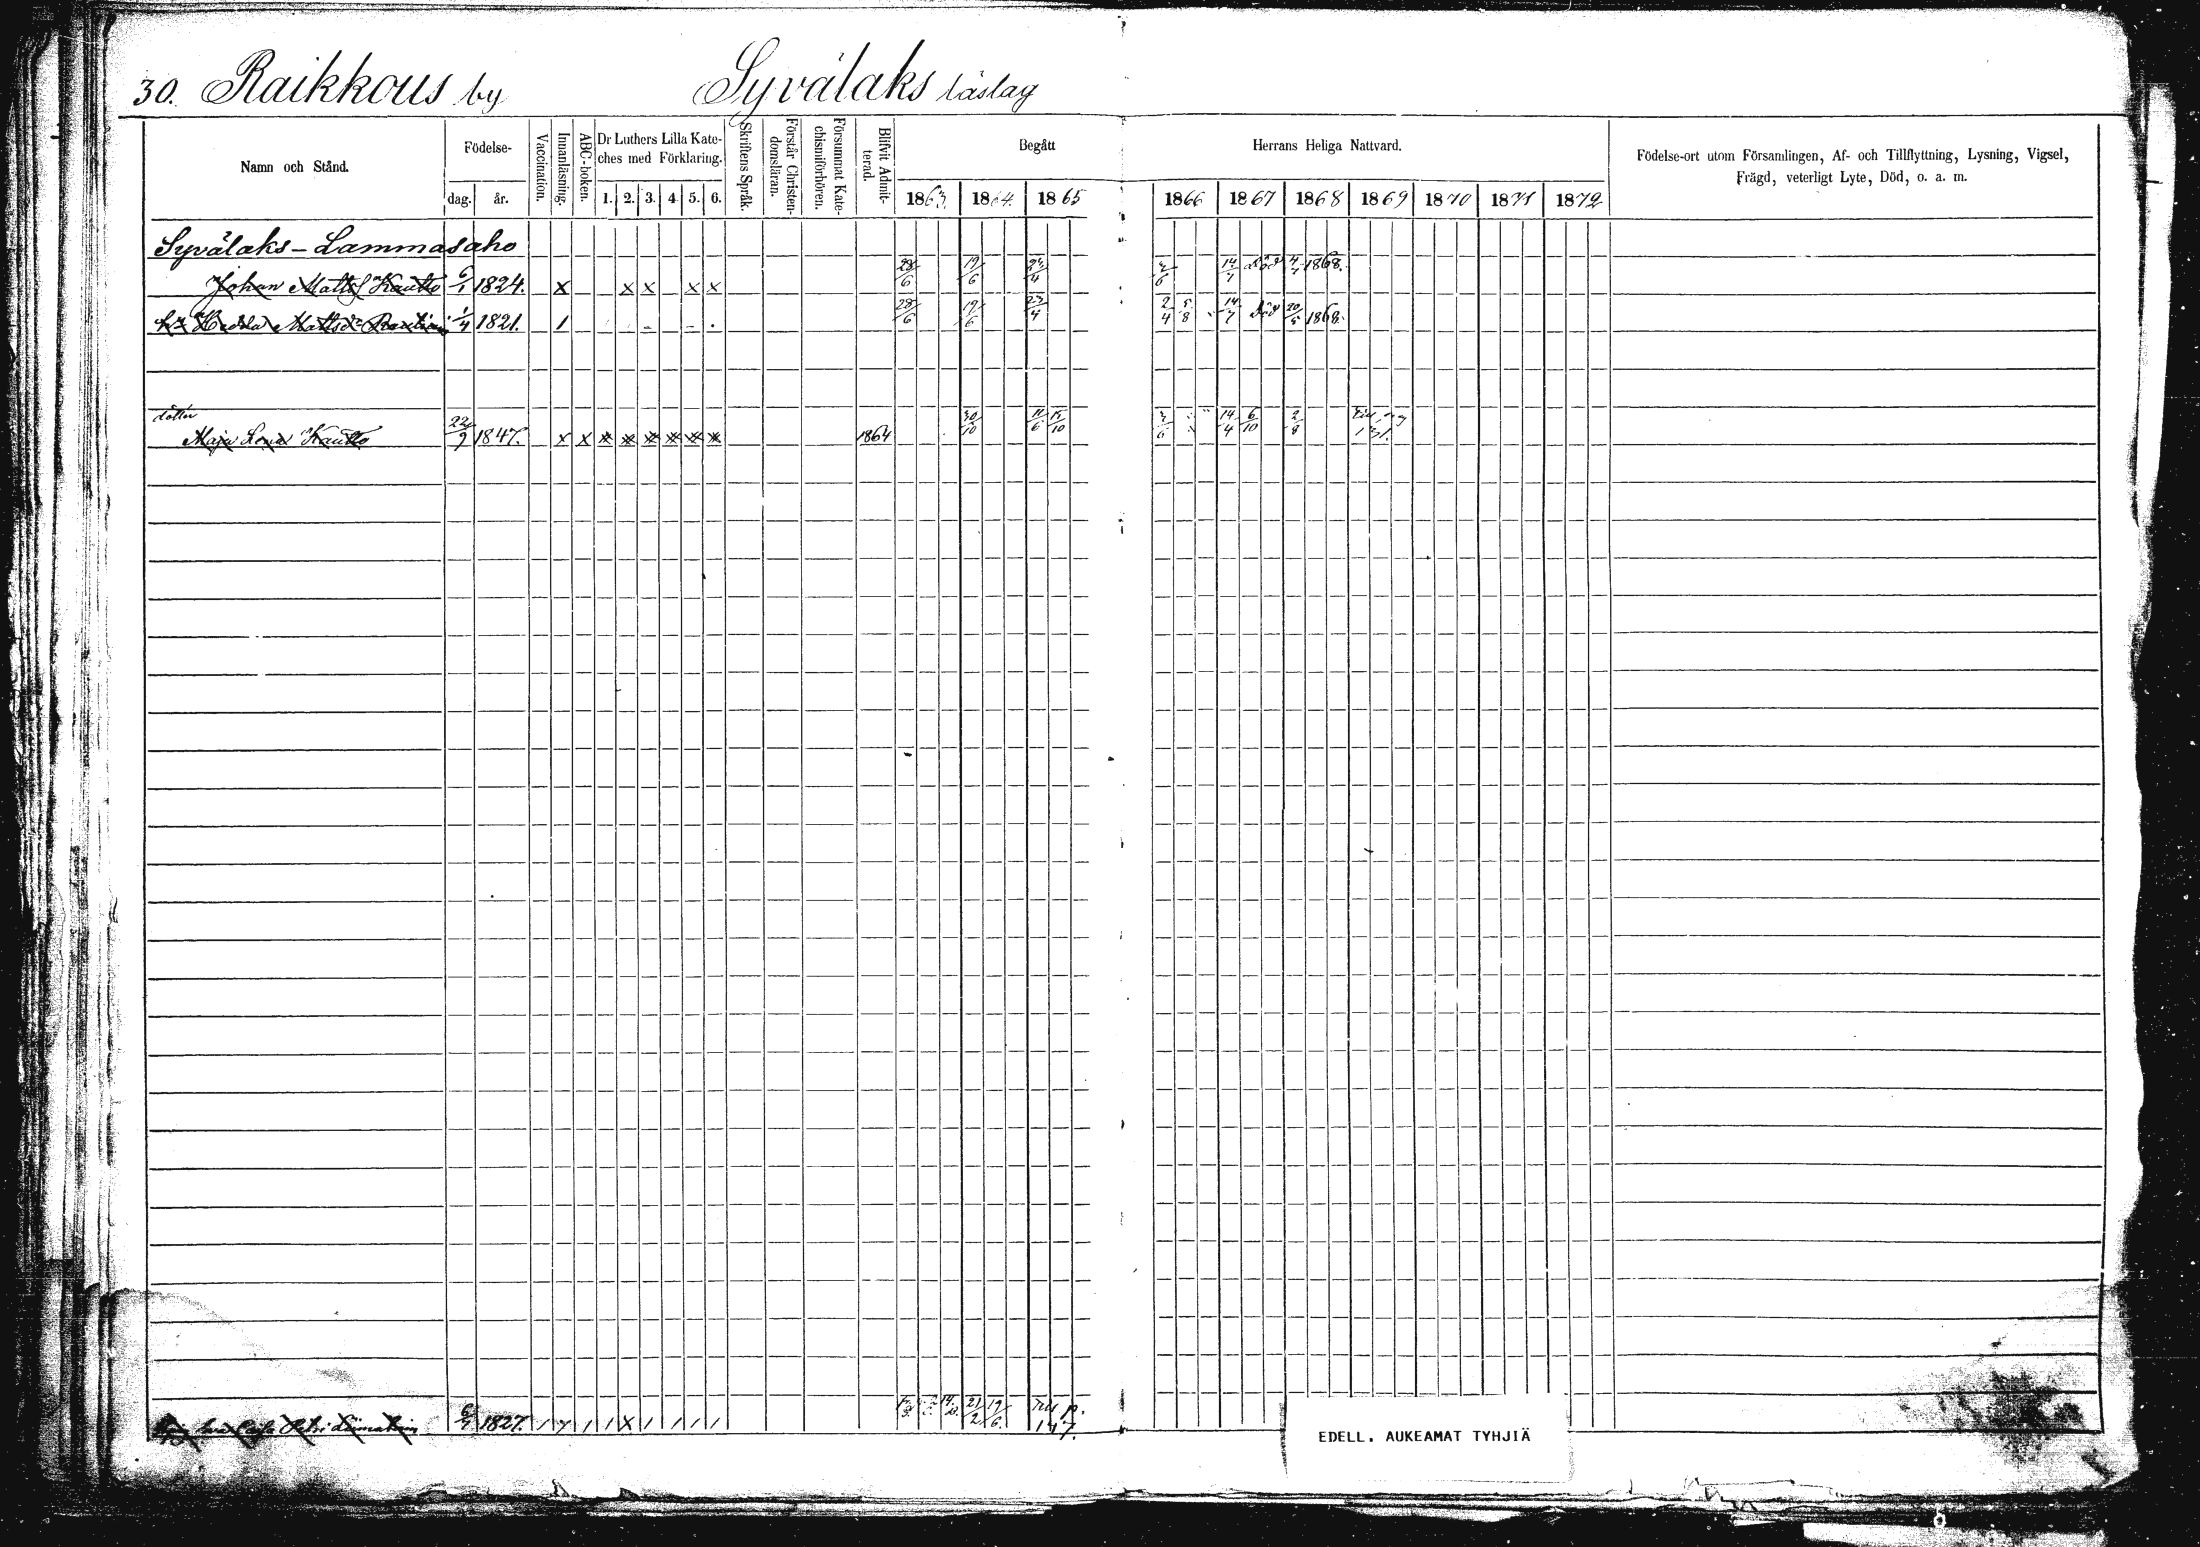 30. Raikkous by Syvälaks läslag
Namn och Stånd.
Födelse-
dag. år.
Vaccination.
Innanläsning.
ABC-boken.
Dr Luthers Lilla Kate-
ches med Förklaring.
1. 2. 3. 4. 5. 6.
Skriftens Språk.
Förstår Christen-
domsläran.
Försummat Kate-
chismiförhören.
Blifvit Admit-
terad.
Begått Herrans Heliga Nattvard.
1863. 1864. 1865 1866 1867 1868 1869 1870 1871 1872
Födelse-ort utom Församlingen, Af- och Tillflyttning, Lysning, Vigsel,
Frägd, veterligt Lyte, Död, o. a. m.
Syvälaks - Lammasaho
Johan Matts Kautto 6/1 1824. x x x x x 28/6 19/6 23/4 14/7 död 4/4 1868.
Hedda Mattsd 1/4 1821. 1 28/6 19/6 23/4 2/4 5/8 14/7 död 20/5 1868.
dotter
Maja Lena Kautto 22/9 1847. x x x x x x x x 1864 30/10 11/6 15/10 14/4 6/10 2/8
6/7 1827. 1 1 1 x 1 1 1 1 21/2 19/6 Till p.
147.
EDELL. AUKEAMAT TYHJIÄ
6